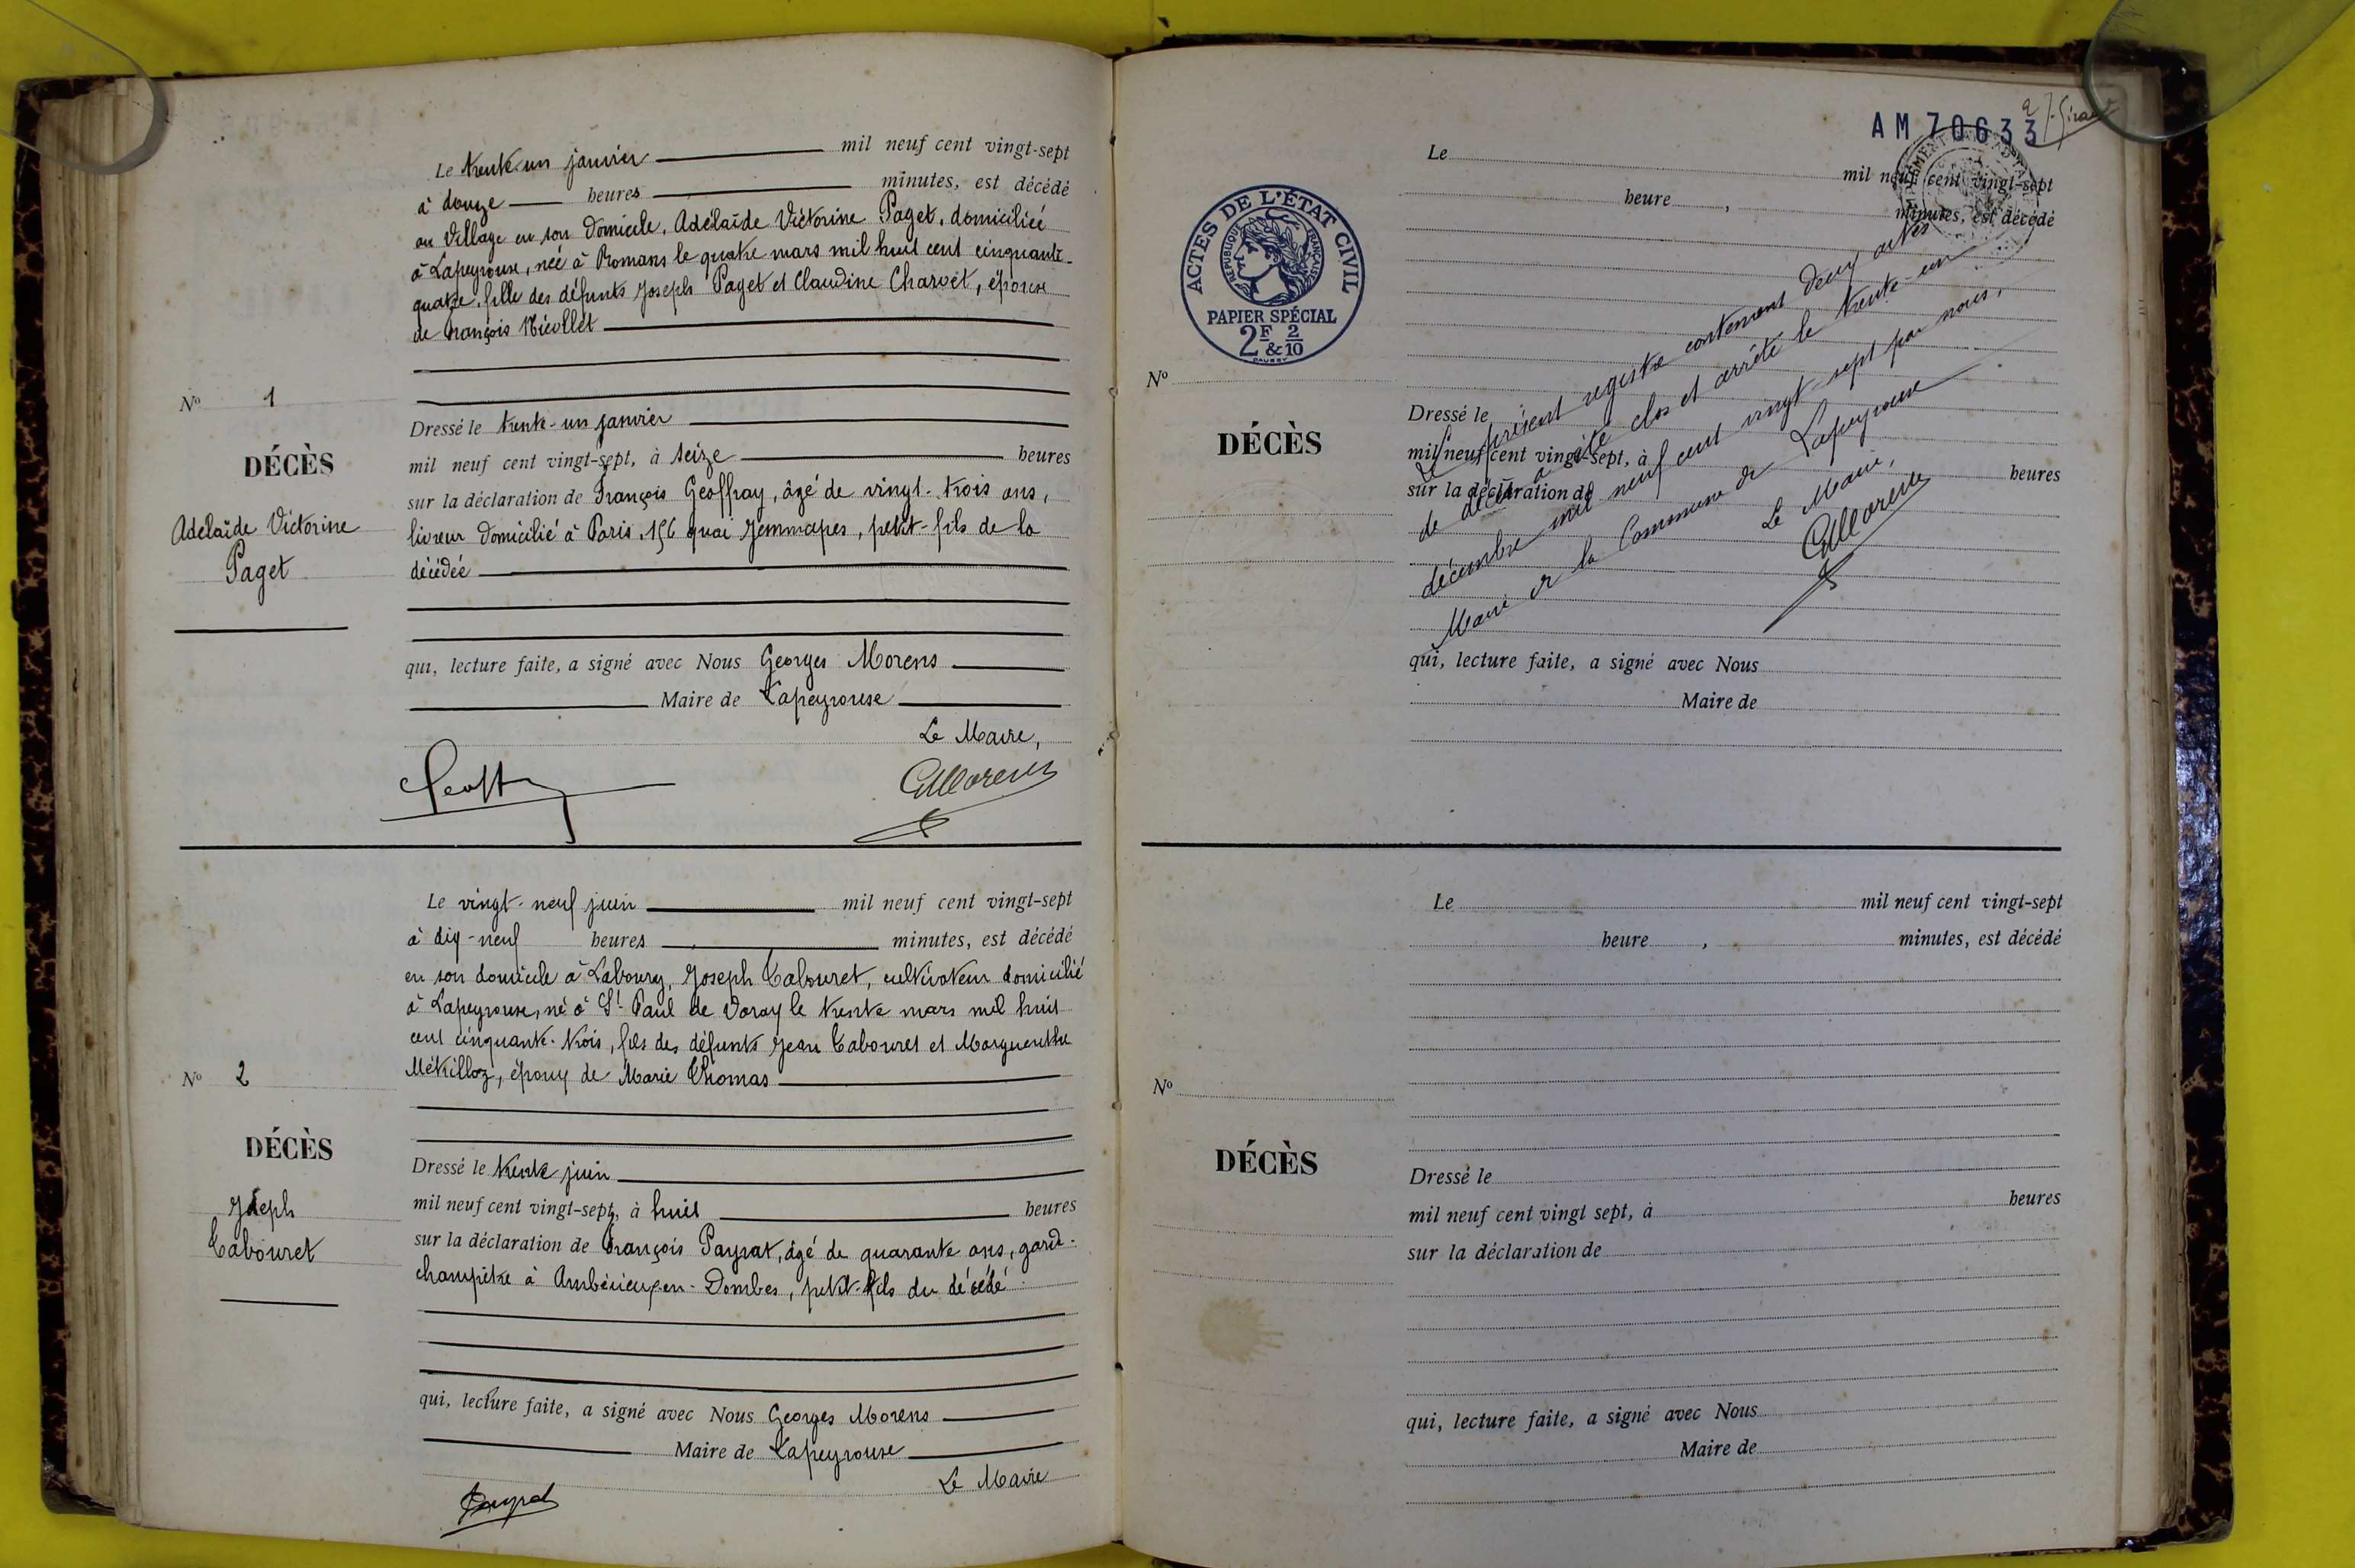 Le trente-un janvier mil neuf cent vingt-sept
à douze heures minutes, est décédé
au Village en son domicile, Adélaïde Victorine Paget, domiciliée
à Lapeyrouse, née à Romans le quatre mars mil huit cent cinquante-
quatre, fille des défunts Joseph Paget et Claudine Charvet, épouse
de François Nicollet
N° 1
DÉCÈS
Adélaïde Victorine
Paget
Dressé le trente-un janvier
mil neuf cent vingt-sept, à seize heures
sur la déclaration de François Geoffray, âgé de vingt-trois ans,
livreur domicilié à Paris, 156 quai Jemmapes, petit-fils de la
décédée
qui, lecture faite, a signé avec Nous Georges Morens
Maire de Lapeyrouse
Le Maire,
GMorens
Le vingt-neuf juin mil neuf cent vingt-sept
à dix-neuf heures minutes, est décédé
en son domicile à Laboury, Joseph Cabouret, cultivateur domicilié
à Lapeyrouse, né à St Paul de Varax le trente mars mil huit
cent cinquante-trois, fils des défunts Jean Cabouret et Marguerithe
Métrilloz, époux de Marie Thomas
N° 2
DÉCÈS
Joseph
Cabouret
Dressé le trente juin
mil neuf cent vingt-sept, à huit heures
sur la déclaration de François Payrat, âgé de quarante ans, garde-
champêtre à Ambérieux-en-Dombes, petit-fils du décédé
qui, lecture faite, a signé avec Nous Georges Morens
Maire de Lapeyrouse
Le Maire
Payrat
AM 70633
ACTES DE L'ÉTAT CIVIL
RÉPUBLIQUE FRANÇAISE
PAPIER SPÉCIAL
2F & 2/10
Le mil neuf cent vingt-sept
heure , minutes, est décédé
N°
DÉCÈS
Dressé le
mil neuf cent vingt-sept, à heures
sur la déclaration de
Le présent registre contenant deux actes
de décès a été clos et arrêté le trente-un
décembre mil neuf cent vingt-sept par nous,
Maire de la Commune de Lapeyrouse
Le Maire,
GMorens
qui, lecture faite, a signé avec Nous
Maire de
Le mil neuf cent vingt-sept
heure , minutes, est décédé
N°
DÉCÈS
Dressé le
mil neuf cent vingt sept, à heures
sur la déclaration de
qui, lecture faite, a signé avec Nous
Maire de